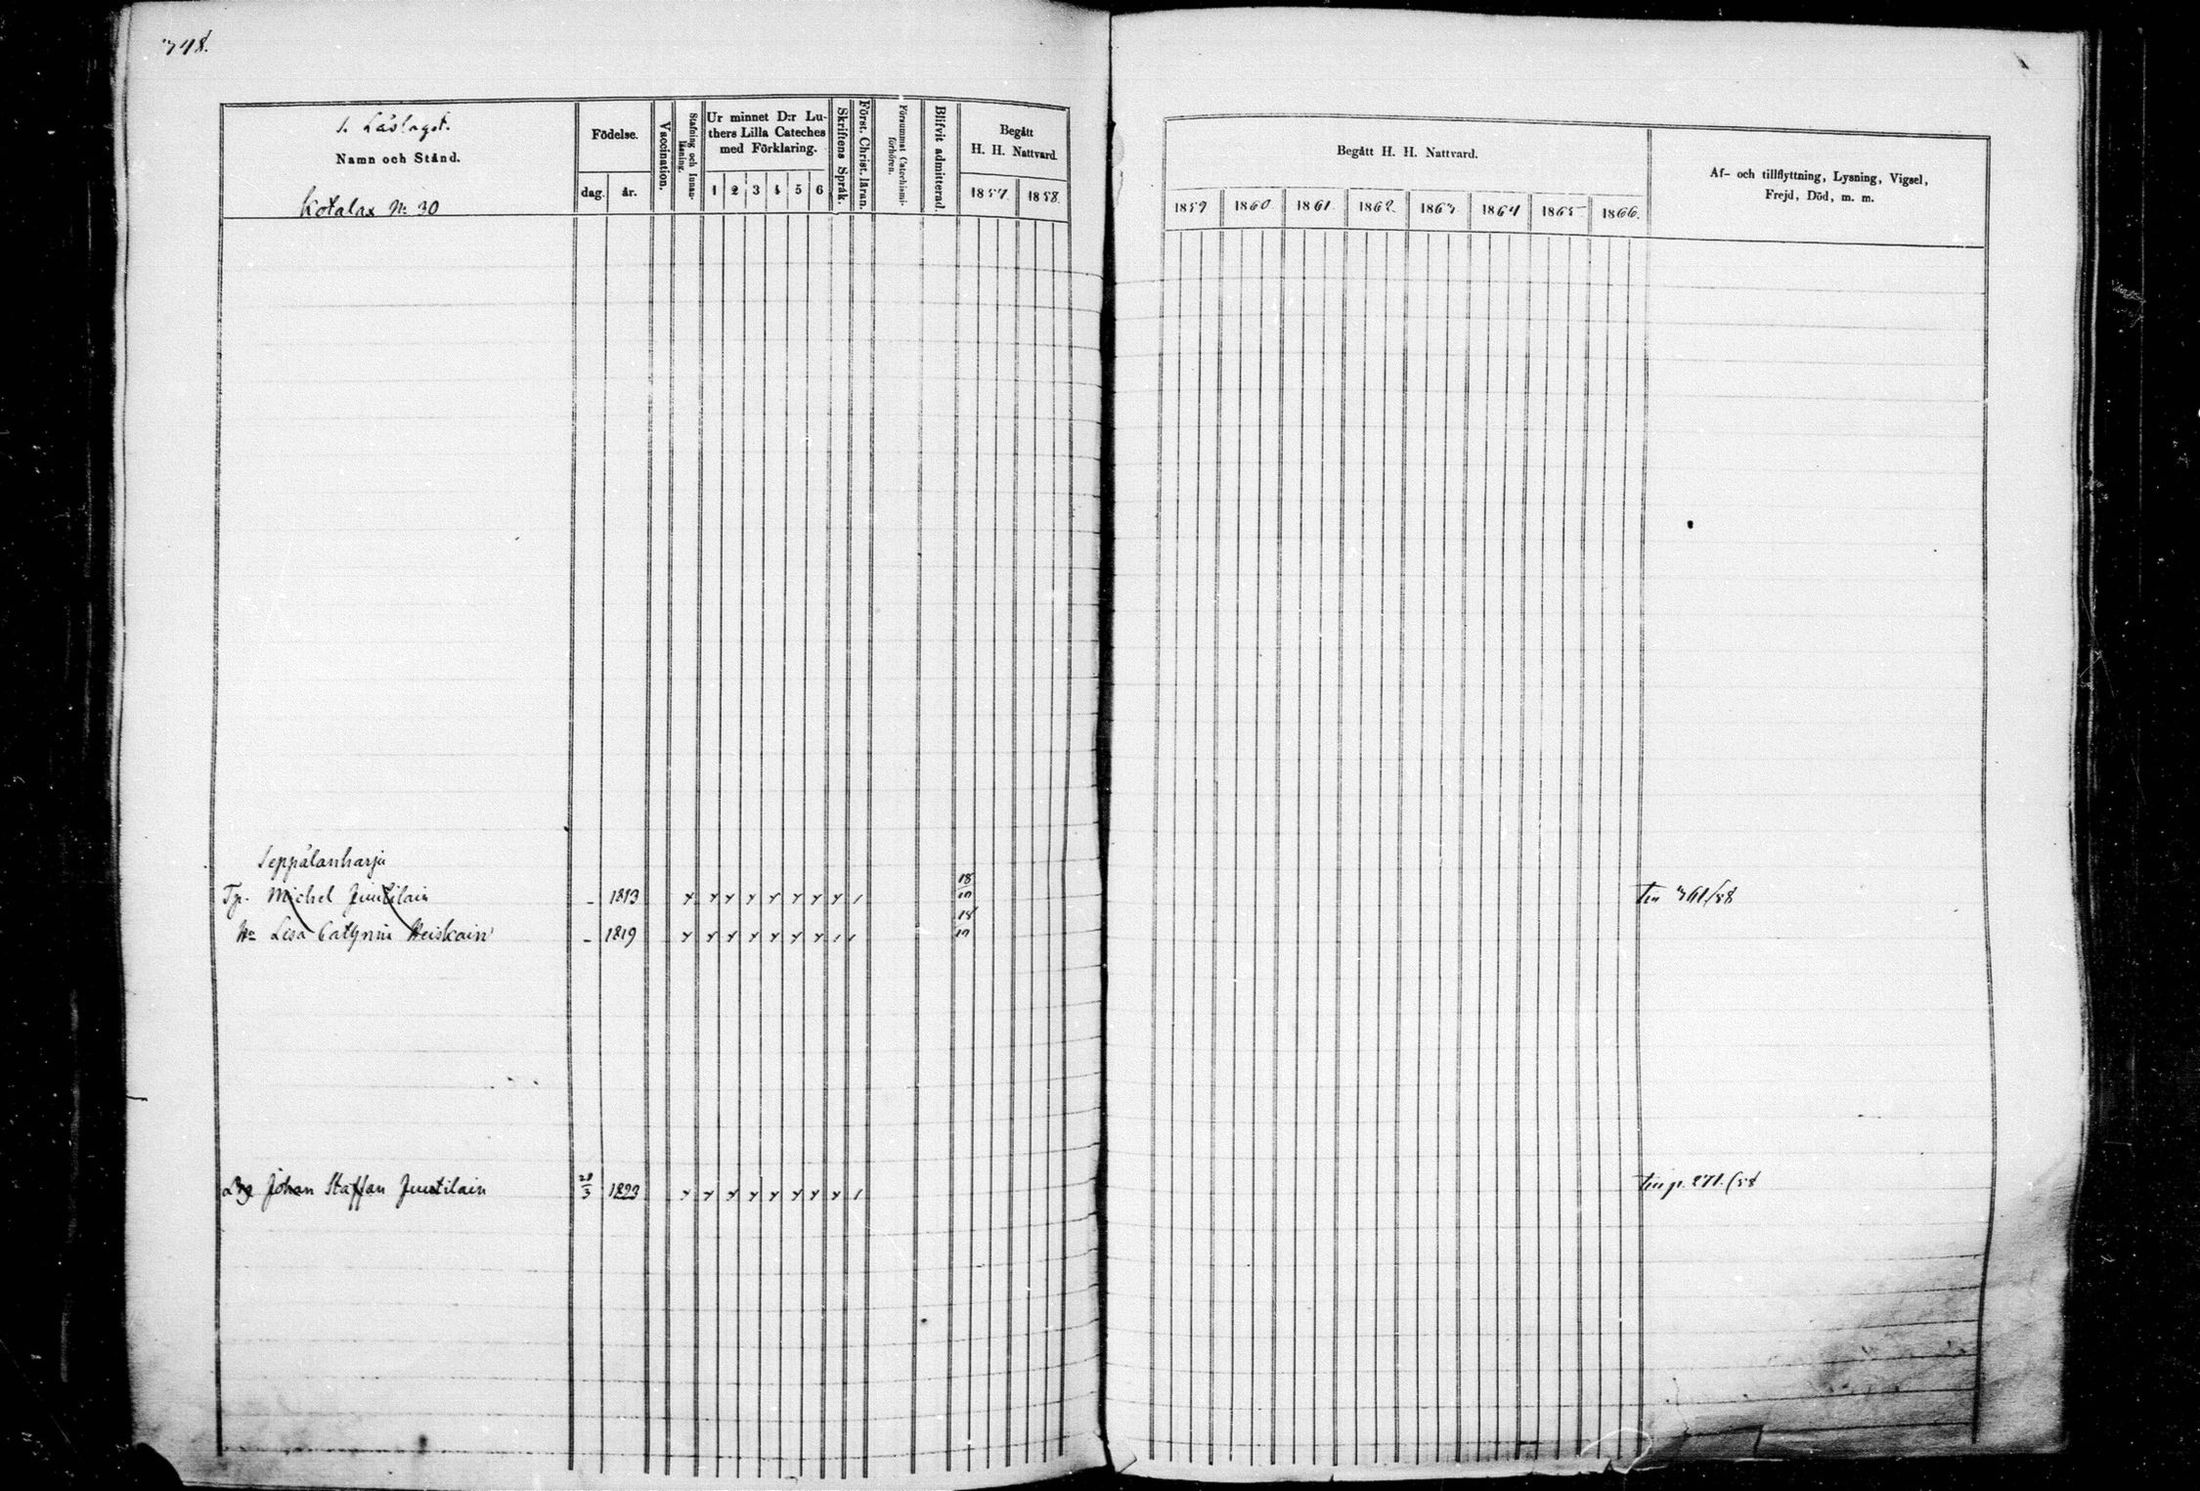 348.
1. Läslaget.
Namn och Stånd.
Kotalax No 30
Födelse.
dag. år.
Vaccination.
Stafning och Innan-
läsning.
Ur minnet D:r Lu-
thers Lilla Cateches
med Förklaring.
1 2 3 4 5 6
Skriftens Språk.
Först. Christ. läran.
Försummat Catechismi-
förhören.
Blifvit admitterad.
Begått
H. H. Nattvard.
1857. 1858.
Begått H. H. Nattvard.
1859 1860. 1861. 1862. 1863 1864 1865 1866.
Af- och tillflyttning, Lysning, Vigsel,
Frejd, Död, m. m.
Seppälanharju
Tp. Michel Juutilain - 1813 18/10 361/58
Lisa Cathrin Heiskain - 1819 18/10
Johan Staffan Juutilain 28/3 1823 p. 271./58